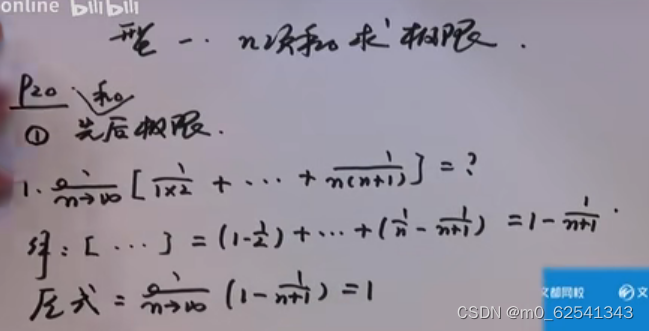 online bilibili
型一. n项和求极限.
P20. 和
① 先后极限.
1. lim n→∞ [ 1/(1×2) + ⋯ + 1/(n(n+1)) ] = ?
解: [ ⋯ ] = (1-1/2) + ⋯ + (1/n - 1/(n+1)) = 1 - 1/(n+1).
原式 = lim n→∞ (1 - 1/(n+1)) = 1
文都网校 文
CSDN @m0_62541343